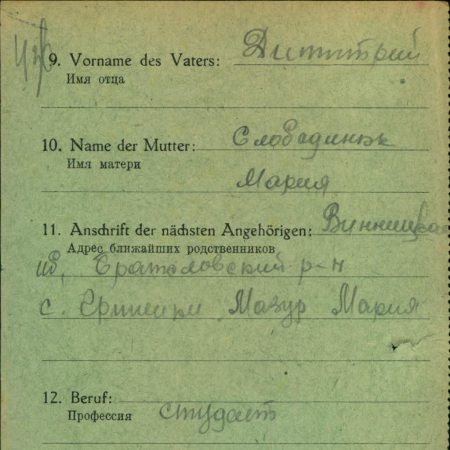 9. Vorname des Vaters: Димитрий
Имя отца
10. Name der Mutter: Слободинюк
Имя матери
Мария
11. Anschrift der nächsten Angehörigen: Винницкая
Адрес ближайших родственников
Брацловский р-н
с. Мазур Мария
12. Beruf:
Профессия студент